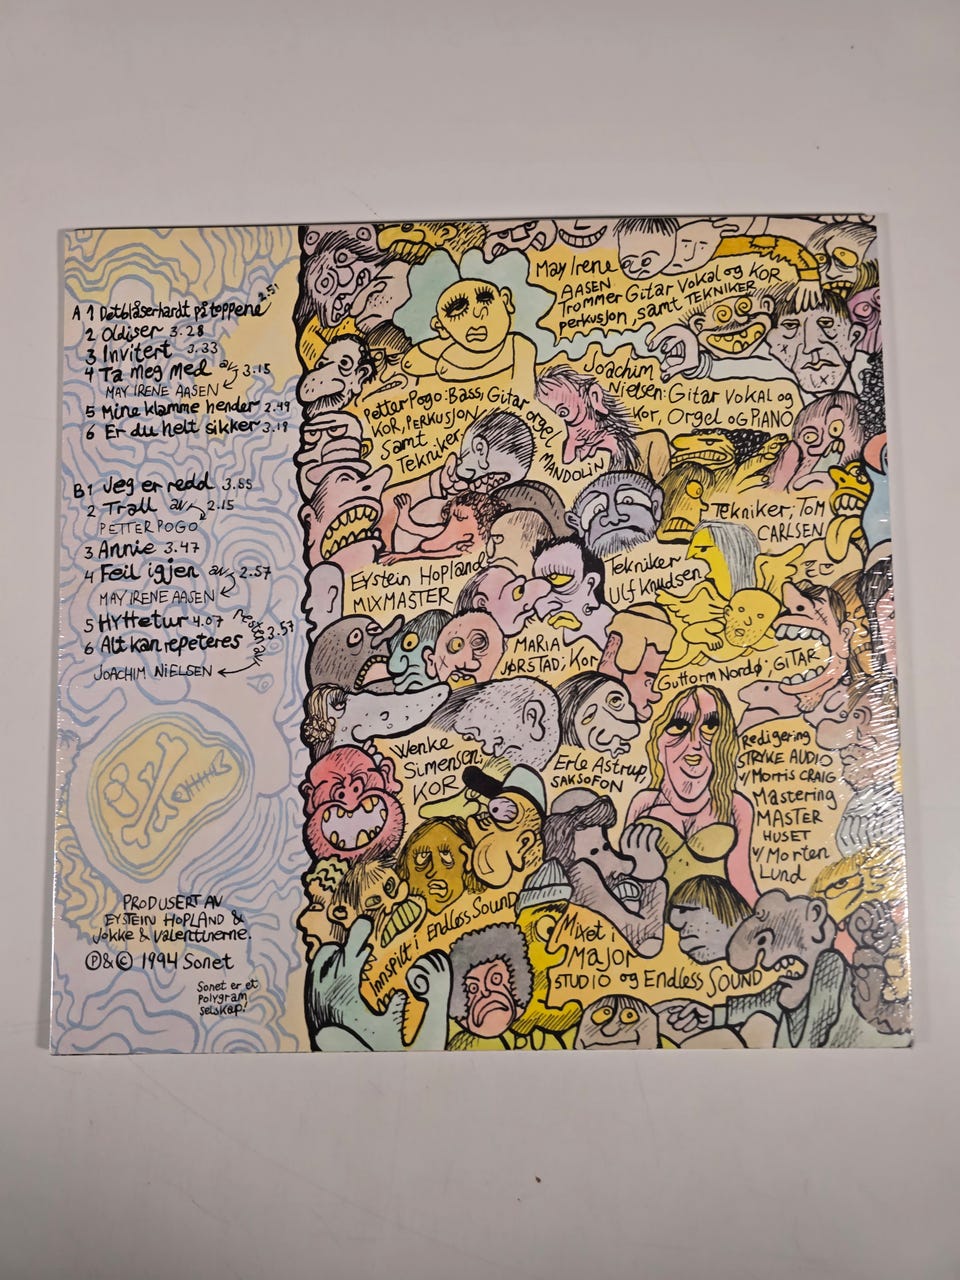 A 1 Detblåserhardt på toppene 2.51
2 Oldiser 3.28
3 Invitert 3.33
4 Ta meg med av 3.15
MAY IRENE AASEN
5 Mine klamme hender 2.49
6 Er du helt sikker 3.18
B1 Jeg er redd 3.55
2 Trall av 2.15
PETTER POGO
3 Annie 3.47
4 Feil igjen av 2.57
MAY IRENE AASEN
5 HYttetur 4.07
6 Alt kan repeteres 3.57
Resten av
JOACHIM NIELSEN
PRODUSERT AV
EYSTEIN HOPLAND &
Jokke & Valentinerne.
Ⓟ&© 1994 Sonet
Sonet er et
polygram
selskap!
May Irene
AASEN
Trommer Gitar Vokal og KOR
perkusjon, samt TEKNIKER
Joachim
Nielsen: Gitar Vokal og
Kor, Orgel og PIANO
Petter Pogo: Bass, Gitar orgel
KOR, PERKUSJON
MANDOLIN
Samt
Tekniker
Tekniker; TOM
CARLSEN
Eystein Hopland
MIXMASTER
Tekniker
Ulf Knudsen
MARIA
JØRSTAD; Kor
Guttorm Nordø; GITAR
Wenke
Simensen:
KOR
Erle Astrup,
SAKSOFON
Redigering
STRYKE AUDIO
v/Morris CRAIG
Mastering
MASTER
HUSET
v/Morten
Lund
Innspilt i Endless Sound
Mixet i
Major
STUDIO og Endless SOUND